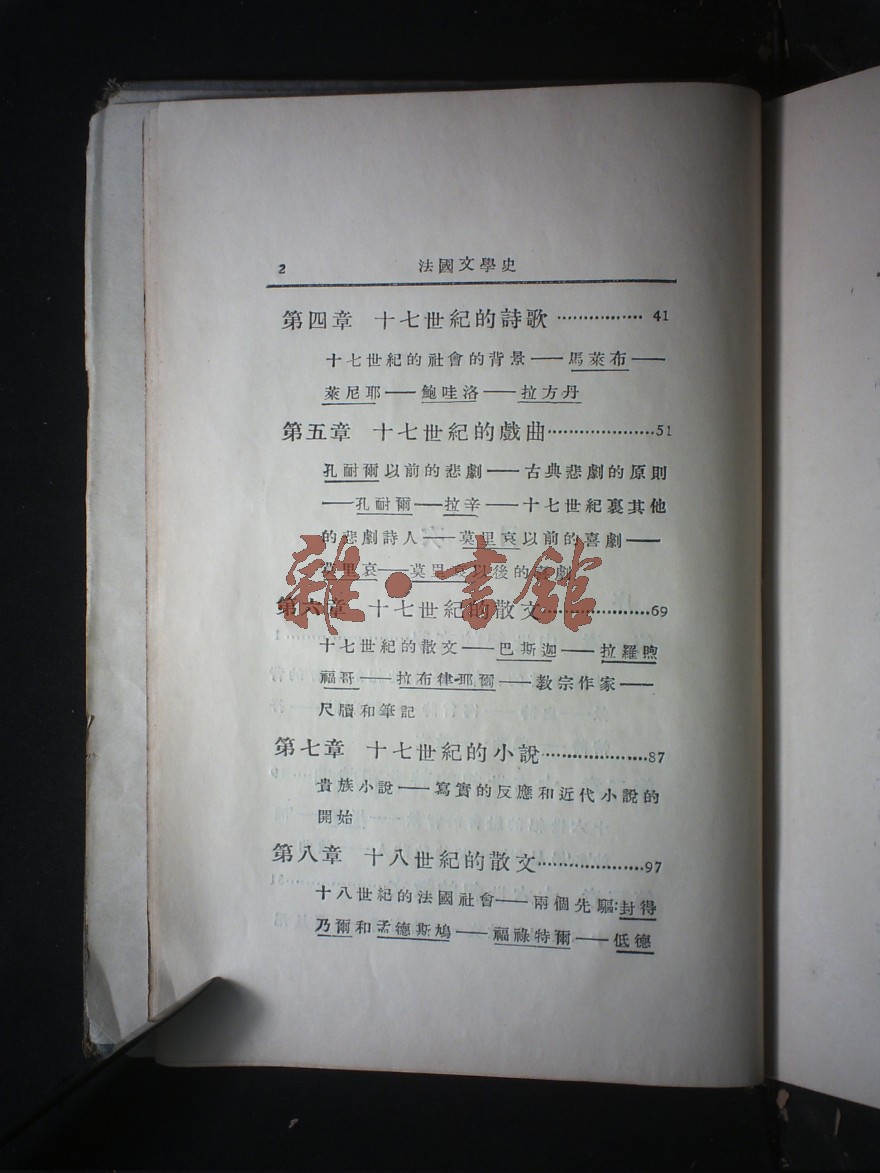 2 法國文學史
第四章 十七世紀的詩歌················ 41
十七世紀的社會的背景——馬萊布——
萊尼耶——鮑哇洛——拉方丹
第五章 十七世紀的戲曲····················51
孔耐爾以前的悲劇——古典悲劇的原則
——孔耐爾——拉辛——十七世紀裏其他
的悲劇詩人——莫里哀以前的喜劇——
莫里哀——莫里哀以後的喜劇
雜·書館
第六章 十七世紀的散文····················69
十七世紀的散文——巴斯迦——拉羅煦
福哥——拉布律耶爾——教宗作家——
尺牘和筆記
第七章 十七世紀的小說····················87
貴族小說——寫實的反應和近代小說的
開始
第八章 十八世紀的散文····················97
十八世紀的法國社會——兩個先驅:封得
乃爾和孟德斯鳩——福祿特爾——低德